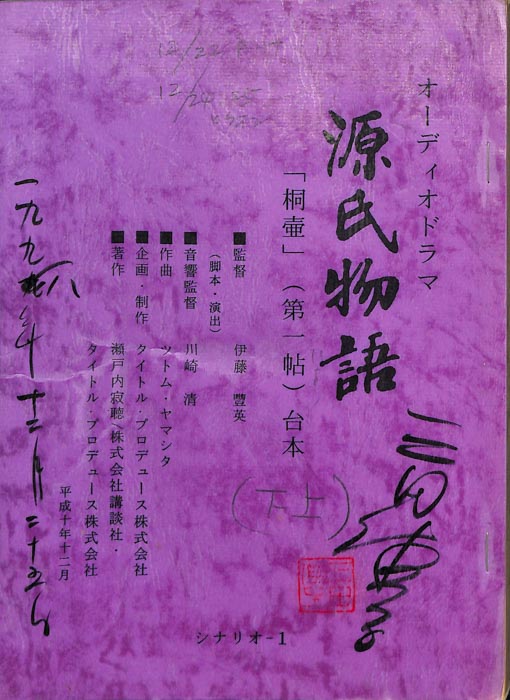 オーディオドラマ
源氏物語
「桐壷」（第一帖）台本
（下上）
■監督　伊藤　豐英
（脚本・演出）
■音響監督　川崎　清
■作曲　ツトム・ヤマシタ
■企画・制作　タイトル・プロデュース株式会社
■著作　瀬戸内寂聴/株式会社講談社・
タイトル・プロデュース株式会社
平成十年十二月
十二月二十五日
シナリオ-1
12/22
12/24